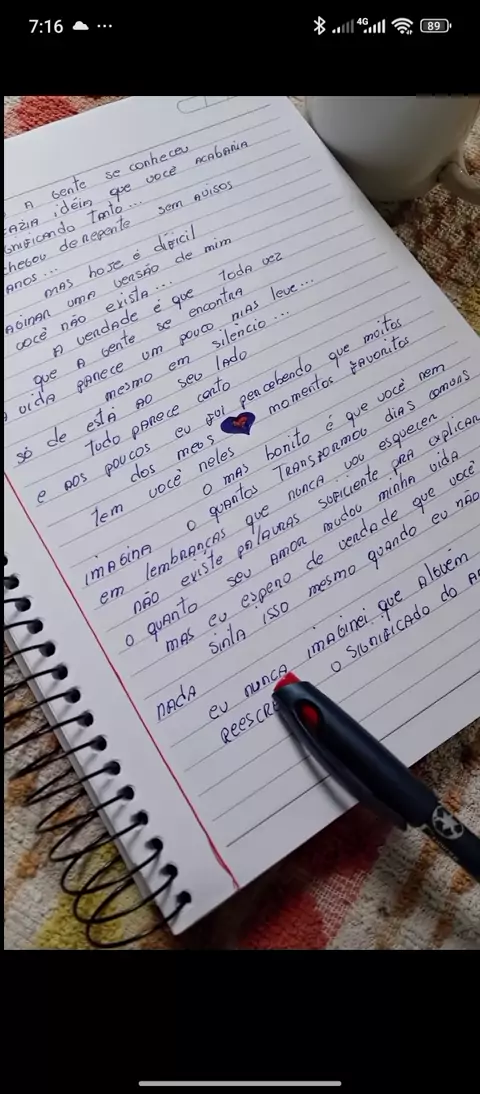 7:16
4G
89
A GENTE SE CONHECEU
FAZIA idéiA QUE VOCÊ ACABARIA
SIGNIFICANDO TANTO...
CHEGOU DE REPENTE SEM AVISOS
ANOS...
MAS HOJE É DIFÍCIL
UMA VERSÃO DE MIM
VOCÊ NÃO EXISTA...
A VERDADE É QUE TODA VEZ
QUE A GENTE SE ENCONTRA
A VIDA PARECE UM POUCO MAS LEVE...
MESMO EM SILÊNCIO...
SÓ DE ESTÁ AO SEU LADO
TUDO PARECE CERTO
E AOS POUCOS EU FUI PERCEBENDO QUE MOITOS
DOS MEUS MOMENTOS FAVORITOS
TEM VOCÊ NELES
O MAS BONITO É QUE VOCÊ NEM
IMAGINA O QUANTOS TRANSFORMOU DIAS COMUNS
EM LEMBRANÇAS QUE NUNCA VOU ESQUECER
NÃO EXISTE PALAVRAS SUFICIENTE PRA EXPLICAR
O QUANTO SEU AMOR MUDOU MINHA VIDA
MAS EU ESPERO DE VERDADE QUE VOCÊ
SINTA ISSO MESMO QUANDO EU NÃO
NADA
EU NUNCA IMAGINEI QUE ALGUÉM
REESCRE O SIGNIFICADO DO